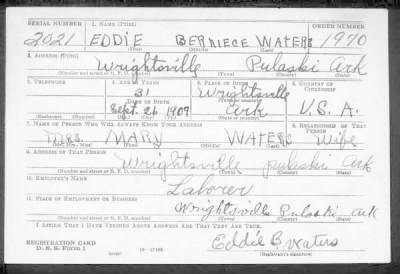 SERIAL NUMBER 1. NAME (Print) ORDER NUMBER
2021 EDDIE BERNIECE WATERS 1970
(First) (Middle) (Last)
2. ADDRESS (Print)
Wrightsville Pulaski Ark
(Number and street or R. F. D. number) (Town) (County) (State)
3. TELEPHONE 4. AGE IN YEARS 5. PLACE OF BIRTH 6. COUNTRY OF CITIZENSHIP
31 Wrightsville
(Town or county)
DATE OF BIRTH
Sept. 26 1909 Ark U.S.A.
(Exchange) (Number) (Mo.) (Day) (Yr.) (State or country)
7. NAME OF PERSON WHO WILL ALWAYS KNOW YOUR ADDRESS 8. RELATIONSHIP OF THAT PERSON
MRS. MARY WATERS Wife
(Mr., Mrs., Miss) (First) (Middle) (Last)
9. ADDRESS OF THAT PERSON
Wrightsville pulaski Ark
(Number and street or R. F. D. number) (Town) (County) (State)
10. EMPLOYER'S NAME
Laborer
11. PLACE OF EMPLOYMENT OR BUSINESS
Wrightsville Pulaski ark
(Number and street or R. F. D. number) (Town) (County) (State)
I AFFIRM THAT I HAVE VERIFIED ABOVE ANSWERS AND THAT THEY ARE TRUE.
REGISTRATION CARD
D. S. S. Form 1 (over) Eddie B. Waters
(Registrant's signature)